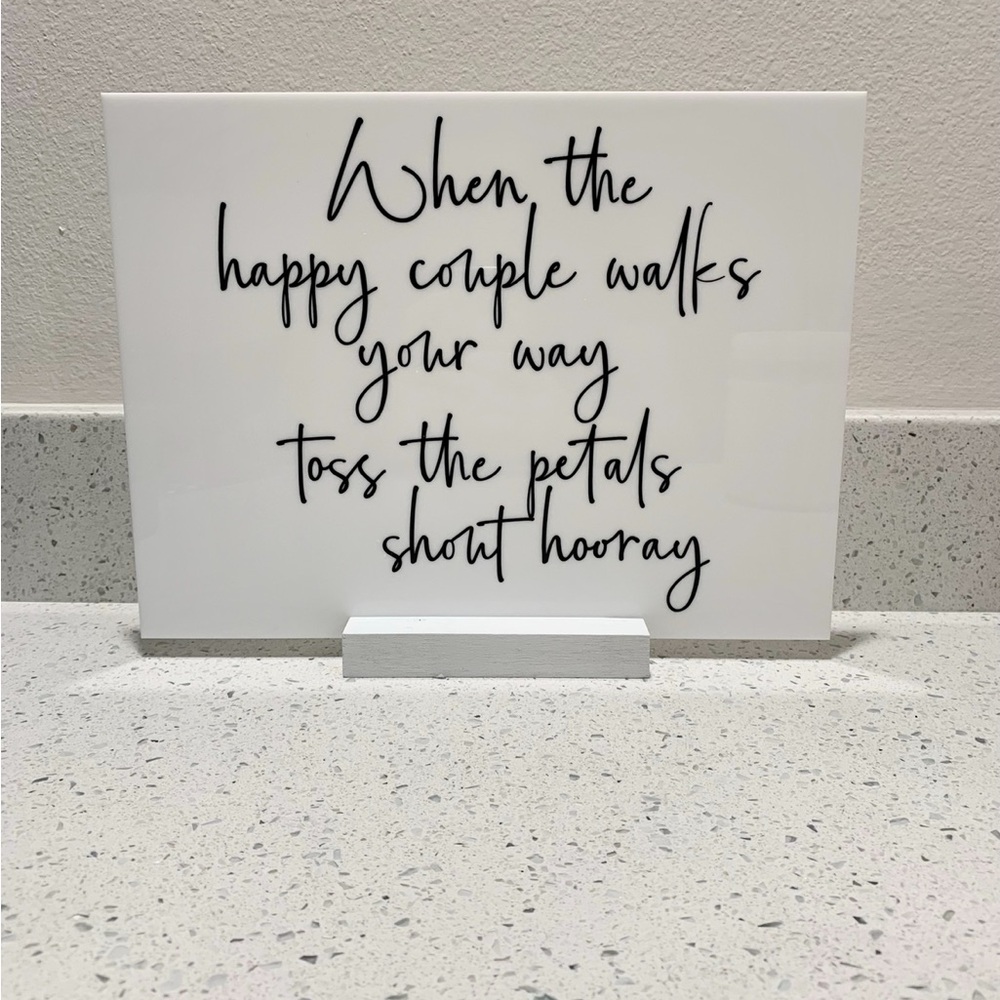 When the
happy couple walks
your way
toss the petals
shout hooray